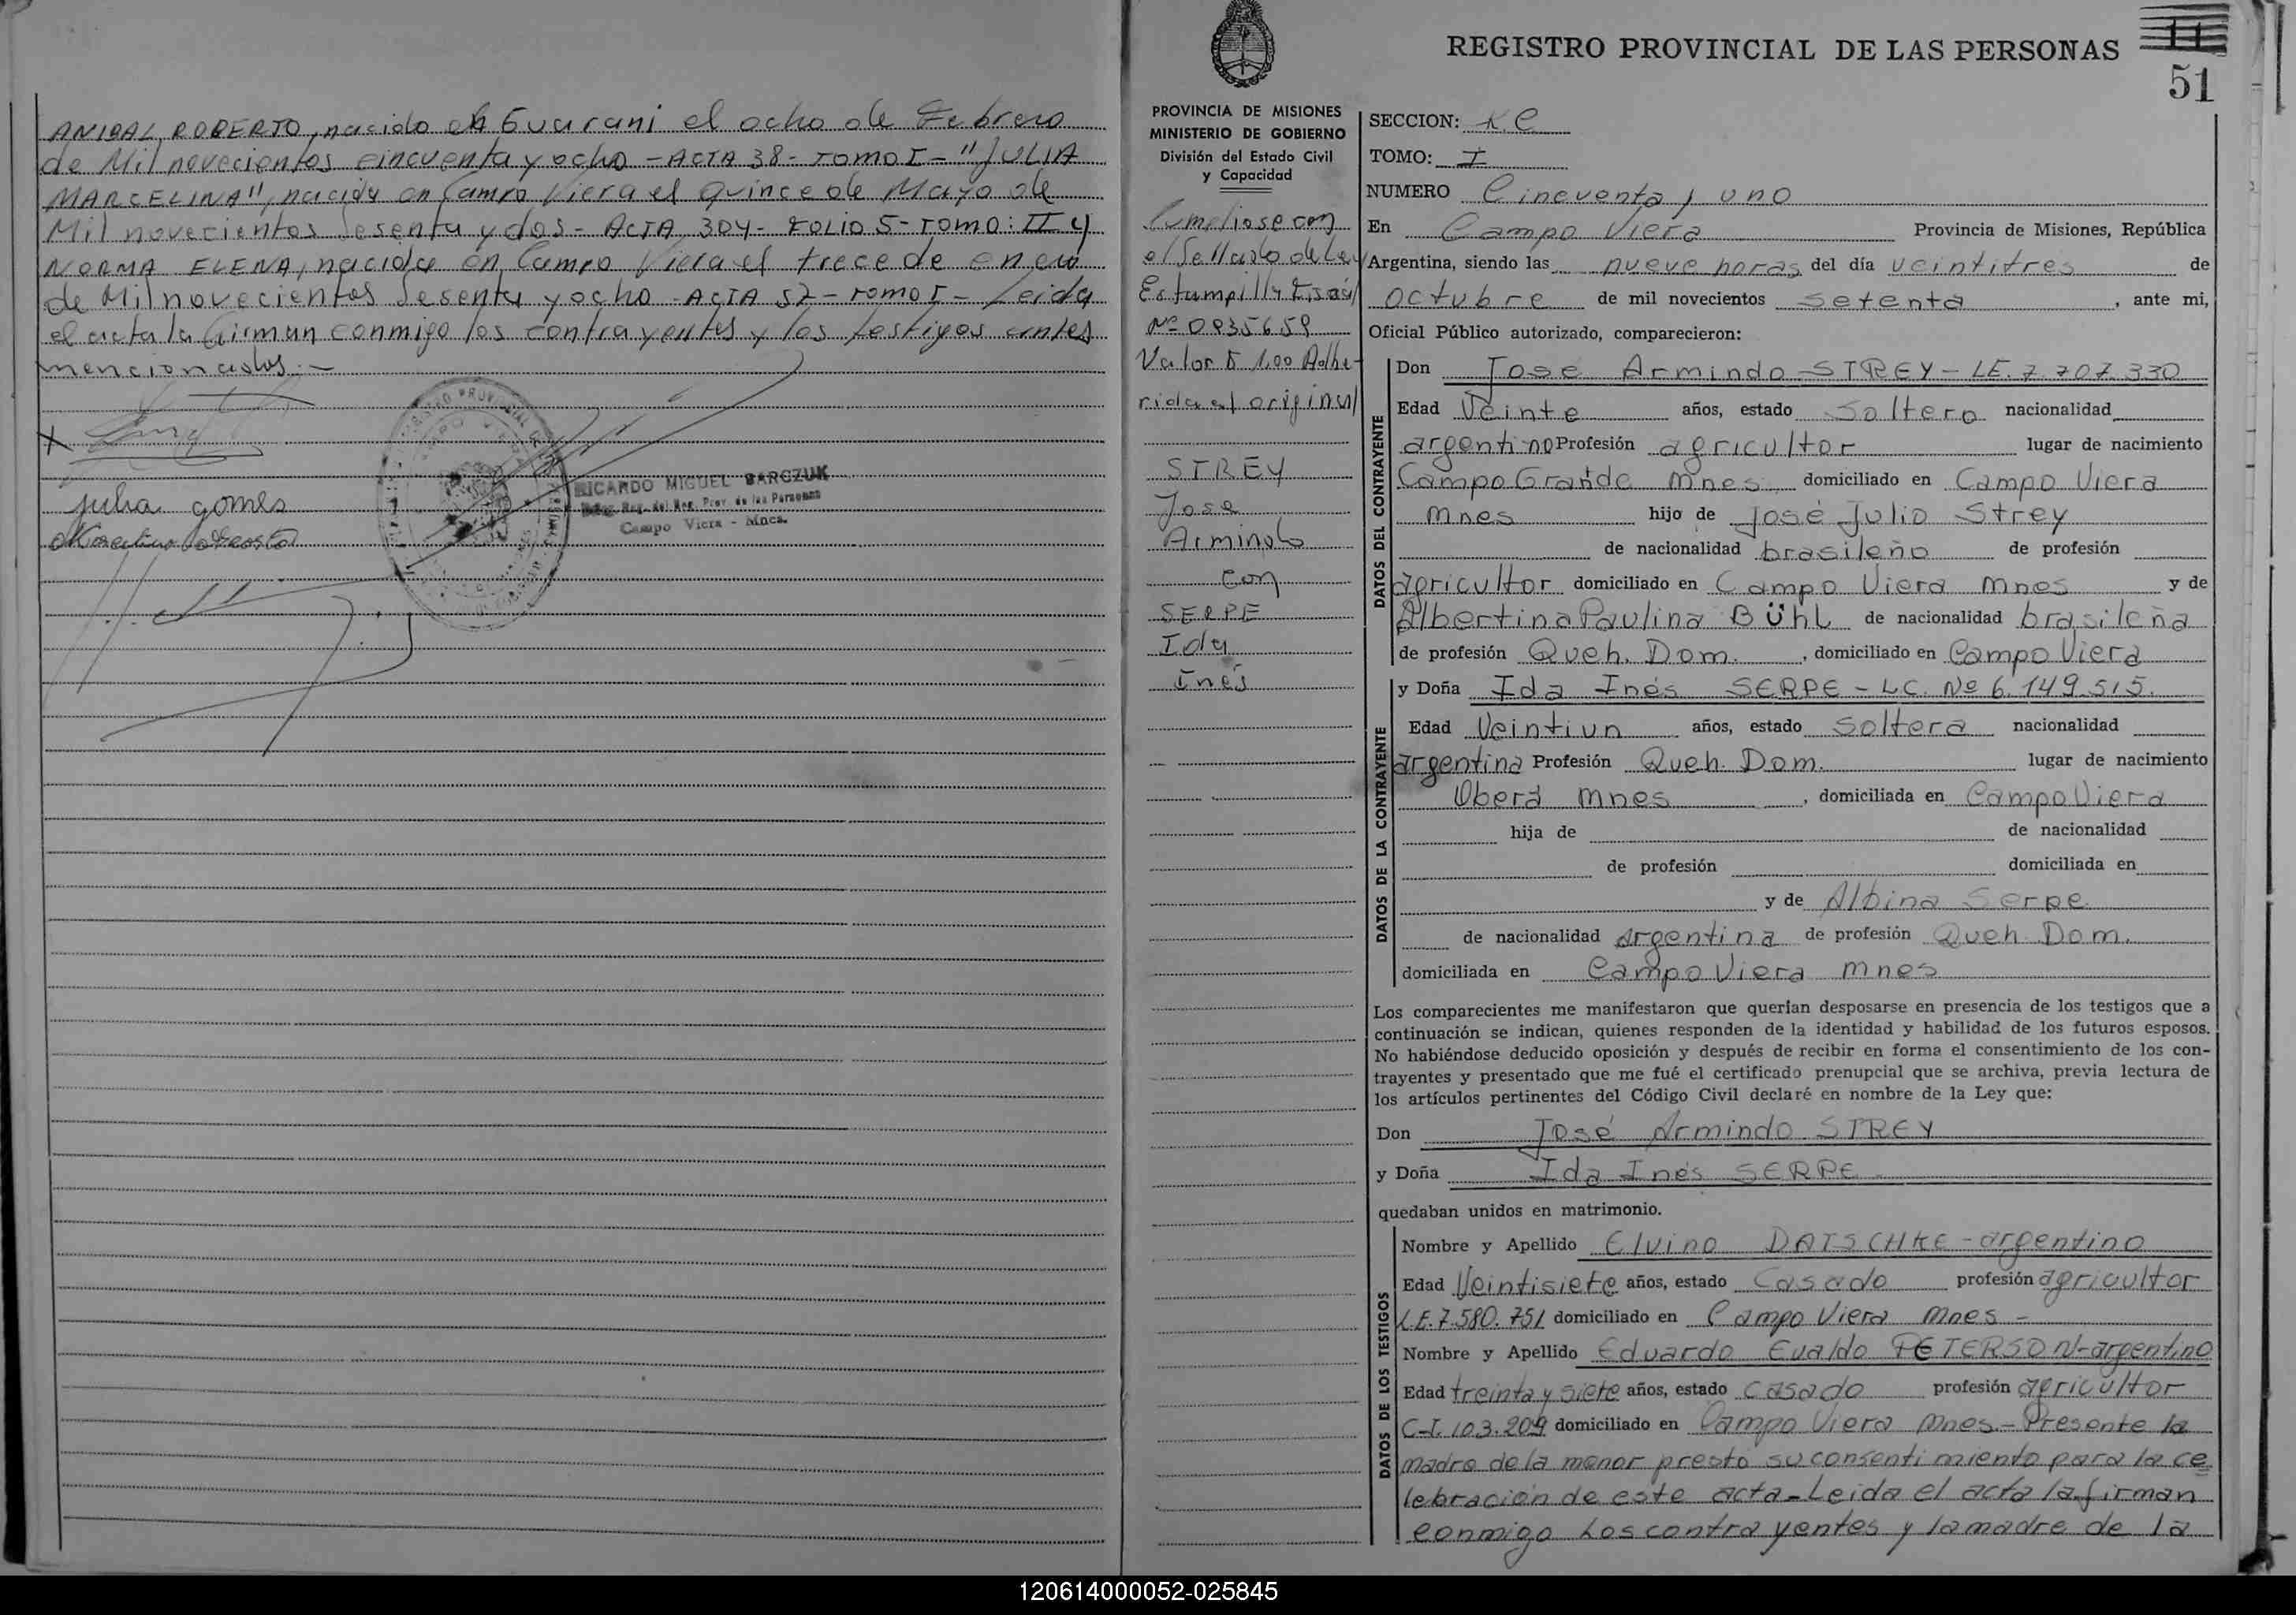 ANIBAL ROBERTO, nacido en Guarani el ocho de Febrero
de Mil novecientos cincuenta y ocho - ACTA 38 - TOMO I - "JULIA
MARCELINA", nacida en Campo Viera el quince de Mayo de
Mil novecientos Sesenta y dos - ACTA 304 - FOLIO 5 - TOMO: II y
NORMA ELENA, nacida en Campo Viera el trece de enero
de Mil novecientos Sesenta y ocho - ACTA 52 - TOMO I - Leida
el acta la firman conmigo los contrayentes y los testigos antes
mencionados.-
julia gomes
RICARDO MIGUEL BARCZUK
Reg. del Reg. Prov. de las Personas
Campo Viera - Mnes.
11
REGISTRO PROVINCIAL DE LAS PERSONAS
51
PROVINCIA DE MISIONES
MINISTERIO DE GOBIERNO
División del Estado Civil
y Capacidad
Cumpliose con
el Sellado de Ley
Estampilla Fiscal
Nº 0835659
Valor $ 1,00 Adhe-
rida al original
STREY
Jose
Armindo
con
SERPE
Ida
Inés
SECCION: K.C
TOMO: I
NUMERO Cincuenta y uno
En Campo Viera Provincia de Misiones, República
Argentina, siendo las nueve horas del día veintitres de
octubre de mil novecientos setenta, ante mi,
Oficial Público autorizado, comparecieron:
DATOS DEL CONTRAYENTE
Don Jose Armindo STREY - LE. 7.707.330
Edad Veinte años, estado Soltero nacionalidad
argentino Profesión agricultor lugar de nacimiento
Campo Grande Mnes, domiciliado en Campo Viera
Mnes hijo de José Julio Strey
de nacionalidad brasileño de profesión
agricultor domiciliado en Campo Viera Mnes y de
Albertina Paulina BÜHL de nacionalidad brasileña
de profesión Queh. Dom., domiciliado en Campo Viera
DATOS DE LA CONTRAYENTE
y Doña Ida Inés SERPE - LC. Nº 6.149.515.
Edad Veintiun años, estado Soltera nacionalidad
argentina Profesión Queh. Dom. lugar de nacimiento
Oberá Mnes, domiciliada en Campo Viera
hija de de nacionalidad
de profesión domiciliada en
y de Albina Serpe
de nacionalidad argentina de profesión Queh Dom.
domiciliada en Campo Viera Mnes
Los comparecientes me manifestaron que querían desposarse en presencia de los testigos que a
continuación se indican, quienes responden de la identidad y habilidad de los futuros esposos.
No habiéndose deducido oposición y después de recibir en forma el consentimiento de los con-
trayentes y presentado que me fué el certificado prenupcial que se archiva, previa lectura de
los artículos pertinentes del Código Civil declaré en nombre de la Ley que:
Don José Armindo STREY
y Doña Ida Inés SERPE
quedaban unidos en matrimonio.
DATOS DE LOS TESTIGOS
Nombre y Apellido Elvino DATSCHKE - argentino
Edad Veintisiete años, estado Casado profesión agricultor
LE. 7.580.751 domiciliado en Campo Viera Mnes -
Nombre y Apellido Eduardo Evaldo PETERSON - argentino
Edad treinta y siete años, estado casado profesión agricultor
C-I. 103.209 domiciliado en Campo Viera Mnes. - Presente la
madre de la menor presto su consentimiento para la ce
lebración de este acta - Leida el acta la firman
conmigo los contrayentes y la madre de la
120614000052-025845